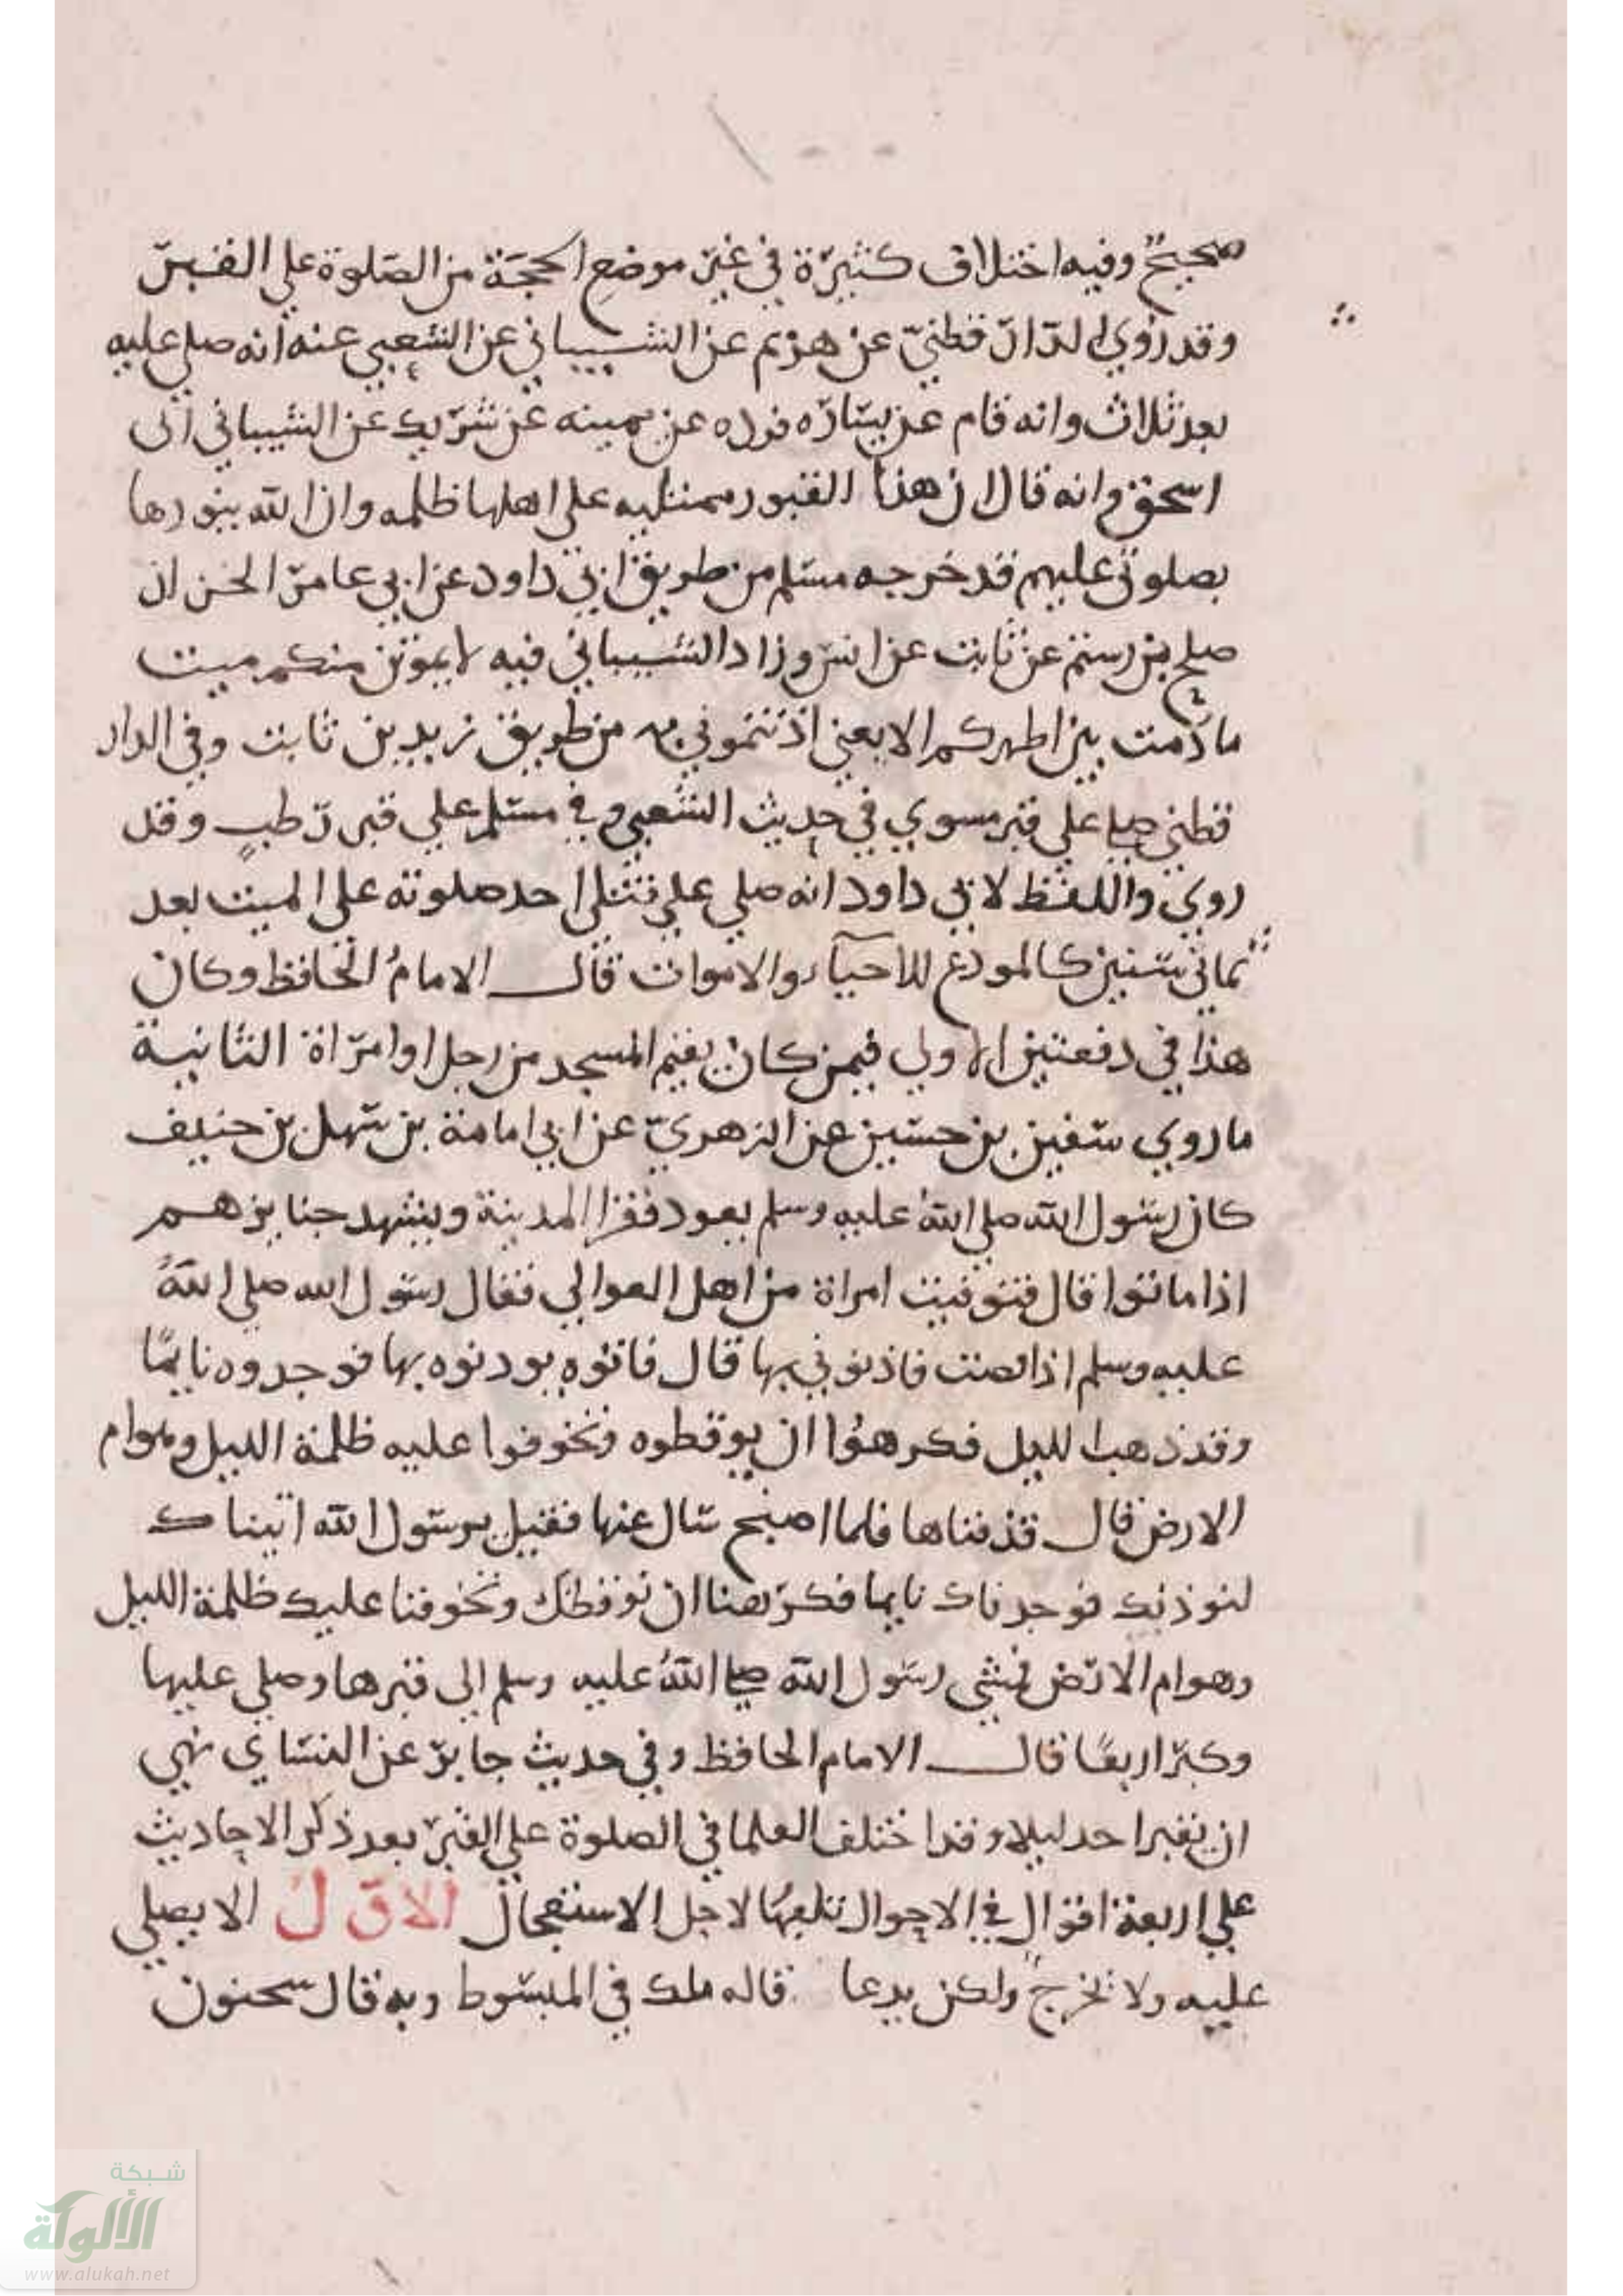 صحيح وفيه اختلاف كثيرة في غير موضع الحجة من الصلوة علي القبر
وقد روي الدار قطني عن هزيم عن الشيباني عن الشعبي عنه انه صلي عليه
بعد ثلاث وانه قام عن يساره فرده عن يمينه عن شريك عن الشيباني ابى
اسحق وانه قال ان هذا القبور ممتليه على اهلها ظلمه وان الله ينورها
بصلوتي عليهم قد خرجه مسلم من طريق ابي داود عن ابي عامر الخزاز
صلح بن رستم عن ثابت عن انس وزاد الشيباني فيه لا يموتن منكم ميت
ما دمت بين اظهركم الا يعني اذنتموني به من طريق زيد بن ثابت وفي الدار
قطني صلي علي قبر مسوي في حديث الشعبي و في مسلم علي قبر رطب وقد
روي واللفظ لابي داود انه صلي علي قتلى احد صلوته على الميت بعد
ثماني سنين كالمودع للاحياء والاموات قال الامام الحافظ وكان
هذا في دفعتين الاولي فيمن كان يقيم المسجد من رجل او امراة الثانية
ما روي سفين بن حسين عن الزهري عن ابي امامة بن سهل بن حنيف
كان رسول الله صلي الله عليه وسلم يعود فقرا المدينة ويشهد جنايزهم
اذا ماتوا قال فتوفيت امراة من اهل العوالي فقال رسول الله صلي الله
عليه وسلم اذا قضت فاذنوني بها قال فاتوه يودنوه بها فوجدوه نايمًا
وقد ذهب الليل فكرهوا ان يوقظوه وتخوفوا عليه ظلمة الليل وهوام
الارض قال فدفناها فلما اصبح سال عنها فقيل يرسول الله اتيناك
لنوذنك فوجدناك نايما فكرهنا ان نوقظك وتخوفنا عليك ظلمة الليل
وهوام الارض فمشى رسول الله صلي الله عليه وسلم الى قبرها وصلي عليها
وكبر اربعًا قال الامام الحافظ وفي حديث جابر عن النساي نهي
ان يقبر احد ليلا وقد اختلف العلما في الصلوة علي القبر بعد ذكر الاحاديث
علي اربعة اقوال في الاحوال لاجل الاستعجال الاول الا يصلي
عليه ولا تخرج ولكن يدعا قاله ملك في المبسوط وبه قال سحنون
شبكة
الألوكة
www.alukah.net